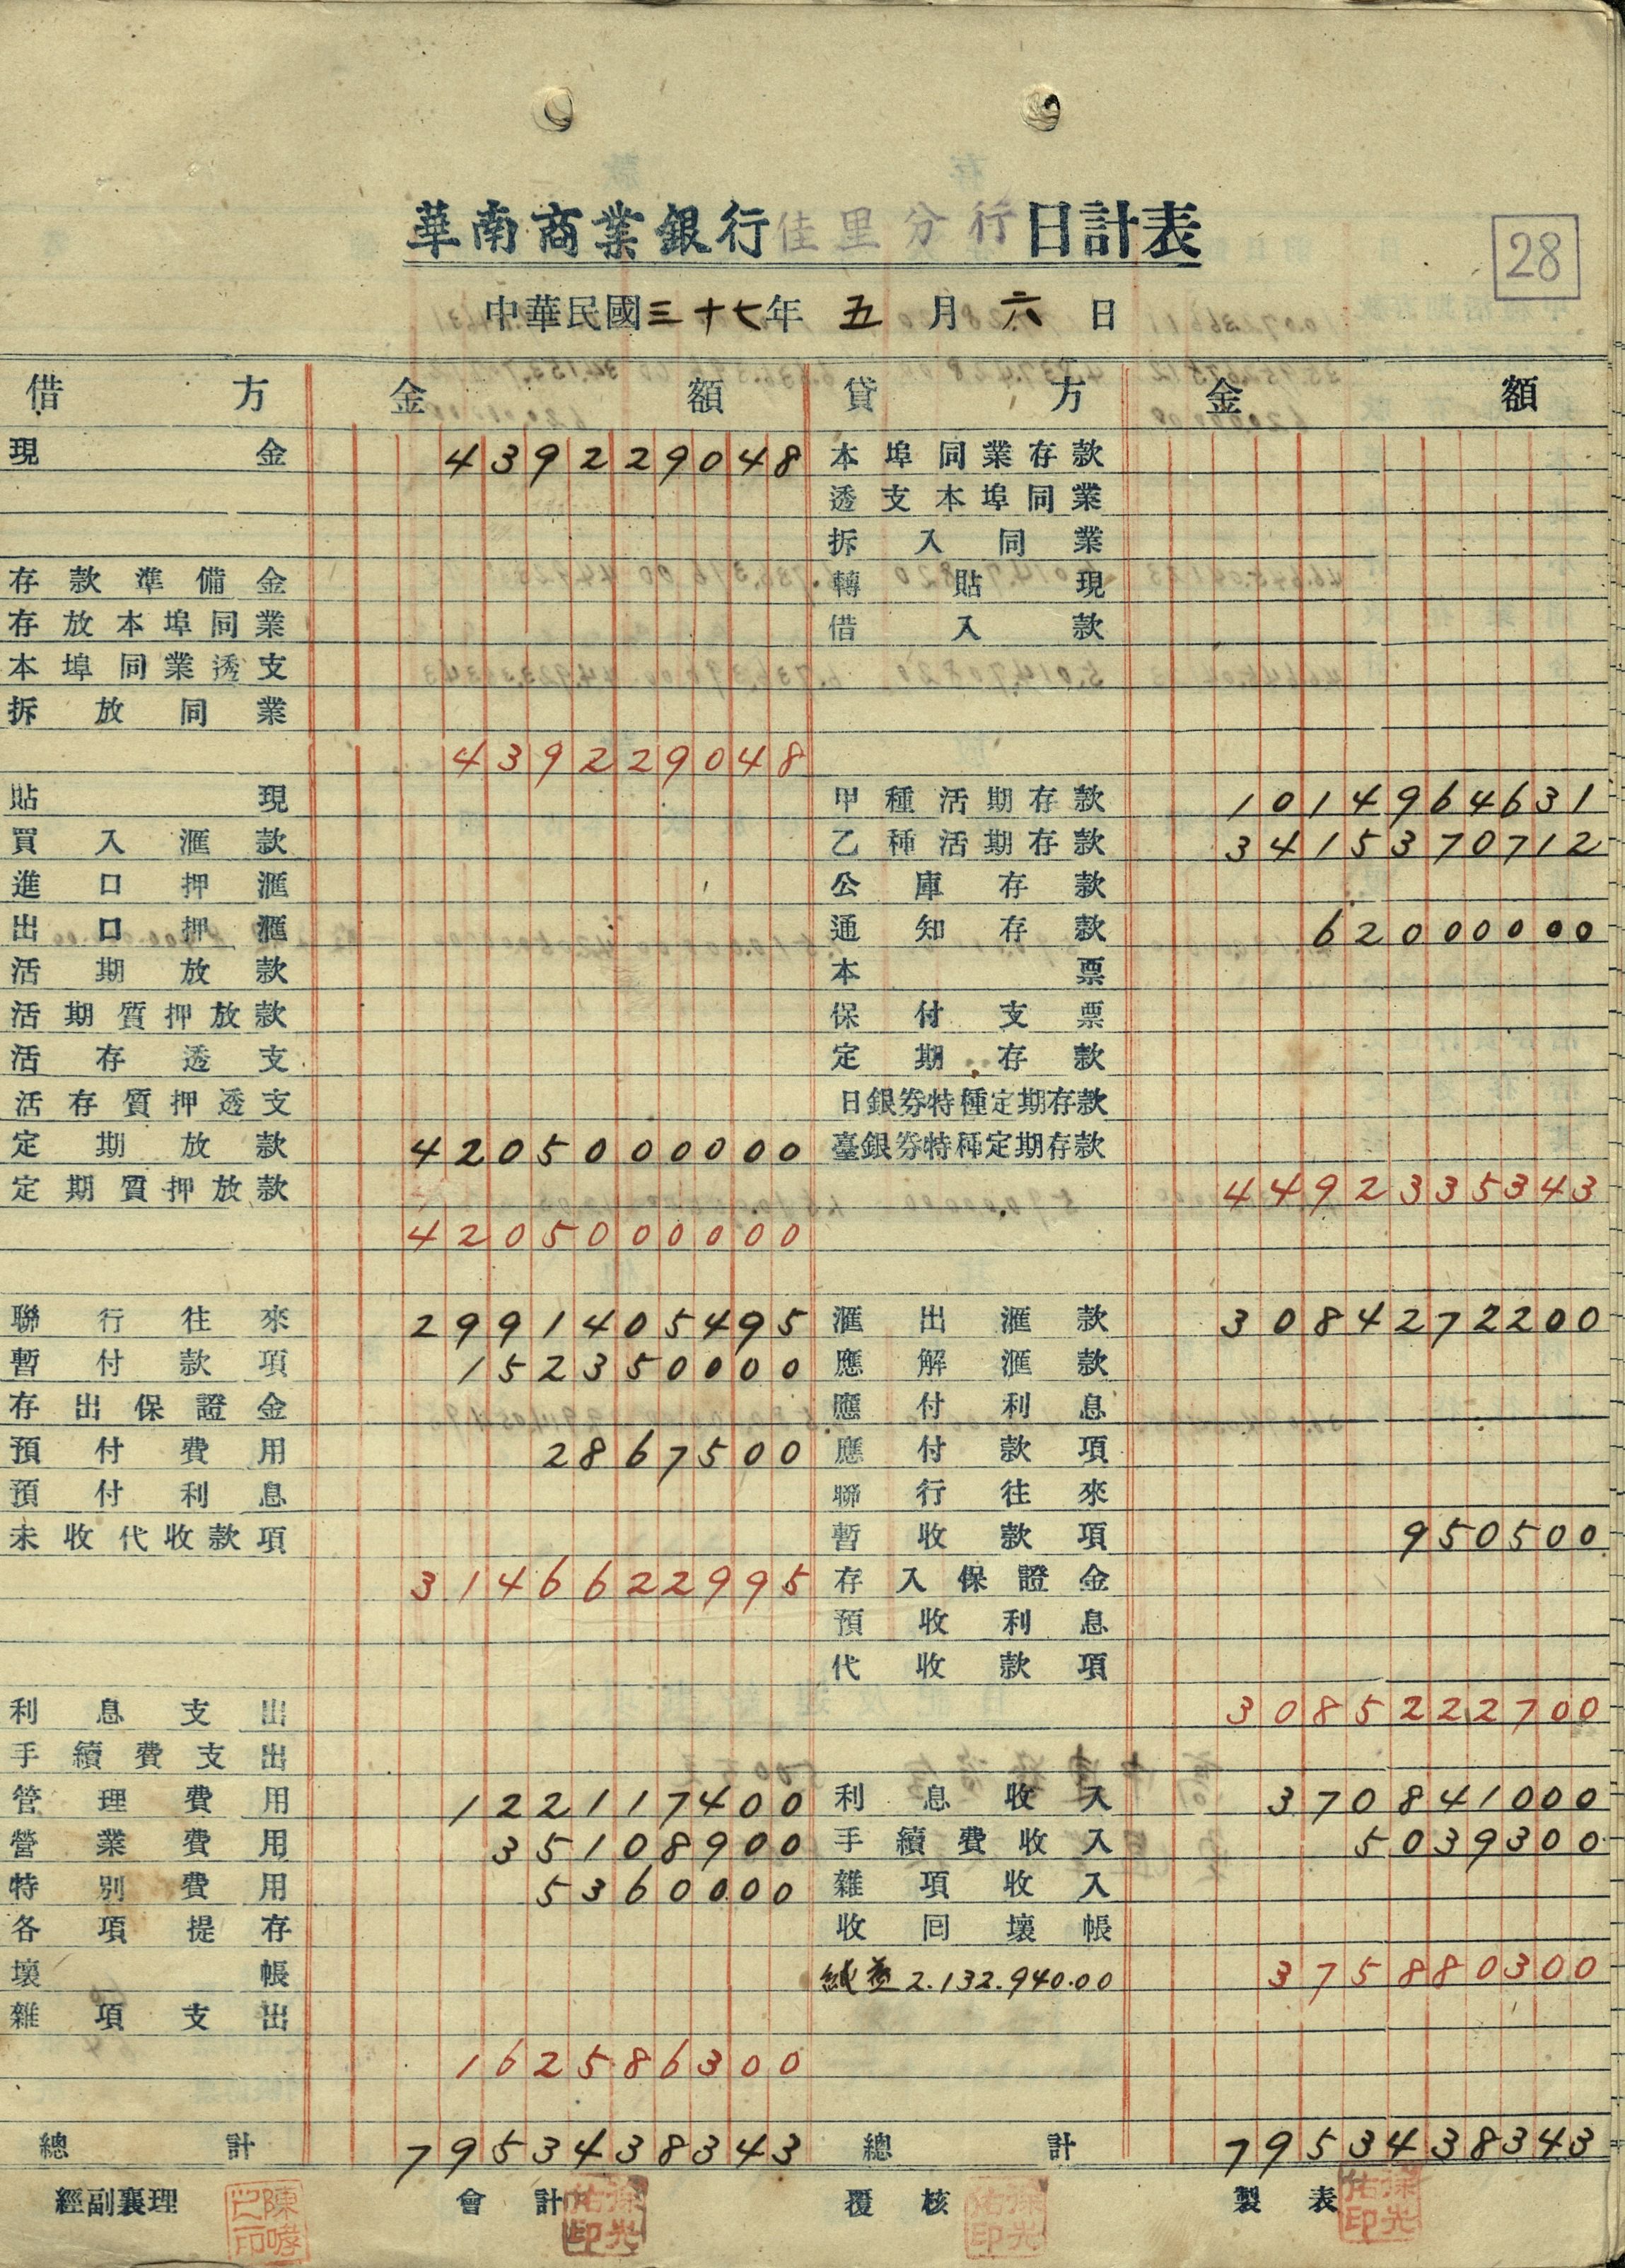 華南商業銀行佳里分行日計表
28
中華民國三十七年 五 月 六 日
借方 金額 貸方 金額
現金 439229048 本埠同業存款
透支本埠同業
拆入同業
存款準備金 轉貼現
存放本埠同業 借入款
本埠同業透支
拆放同業
439229048
貼現 甲種活期存款 1014964631
買入滙款 乙種活期存款 3415370712
進口押滙 公庫存款
出口押滙 通知存款 62000000
活期放款 本票
活期質押放款 保付支票
活存透支 定期存款
活存質押透支 日銀券特種定期存款
定期放款 4205000000 臺銀券特種定期存款
定期質押放款 4492335343
4205000000
聯行往來 2991405495 滙出滙款 3084272200
暫付款項 152350000 應解滙款
存出保證金 應付利息
預付費用 2867500 應付款項
預付利息 聯行往來
未收代收款項 暫收款項 950500
3146622995 存入保證金
預收利息
代收款項
利息支出 3085222700
手續費支出
管理費用 122117400 利息收入 370841000
營業費用 35108900 手續費收入 5039300
特別費用 5360000 雜項收入
各項提存 收回壞帳
壞帳 純益 2.132.940.00 375880300
雜項支出
162586300
總計 7953438343 總計 7953438343
經副襄理 會計 覆核 製表